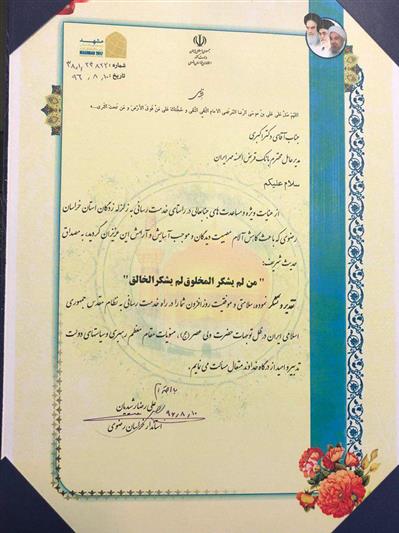 مشهد
MASHHAD 2017
جمهوری اسلامی ایران
وزارت کشور
استانداری خراسان رضوی
شماره: ۳۸۰۱٫۲۳۸۲۲
تاریخ: ۹۶٫۸٫۱۰
اللهم صل علی علی بن موسی الرضا المرتضی الامام التقی النقی و حجتک علی من فوق الارض و من تحت الثری
جناب آقای دکتر اکبری
مدیرعامل محترم بانک قرض الحسنه مهر ایران
سلام علیکم
از عنایت ویژه و مساعدت های جنابعالی در راستای خدمت رسانی به زلزله زدگان استان خراسان
رضوی که باعث کاهش آلام مصیبت دیدگان و موجب آسایش و آرامش این عزیزان گردید، به مصداق
حدیث شریف:
" من لم یشکر المخلوق لم یشکر الخالق "
تقدیر و تشکر نموده، سلامتی و موفقیت روزافزون شما را در راه خدمت رسانی به نظام مقدس جمهوری
اسلامی ایران در ظل توجهات حضرت ولی عصر(عج)، منویات مقام معظم رهبری و سیاستهای دولت
تدبیر و امید از درگاه خداوند متعال مسألت می نمایم.
علی رضا رشیدیان
۹۶٫۸٫۱۰
استاندار خراسان رضوی